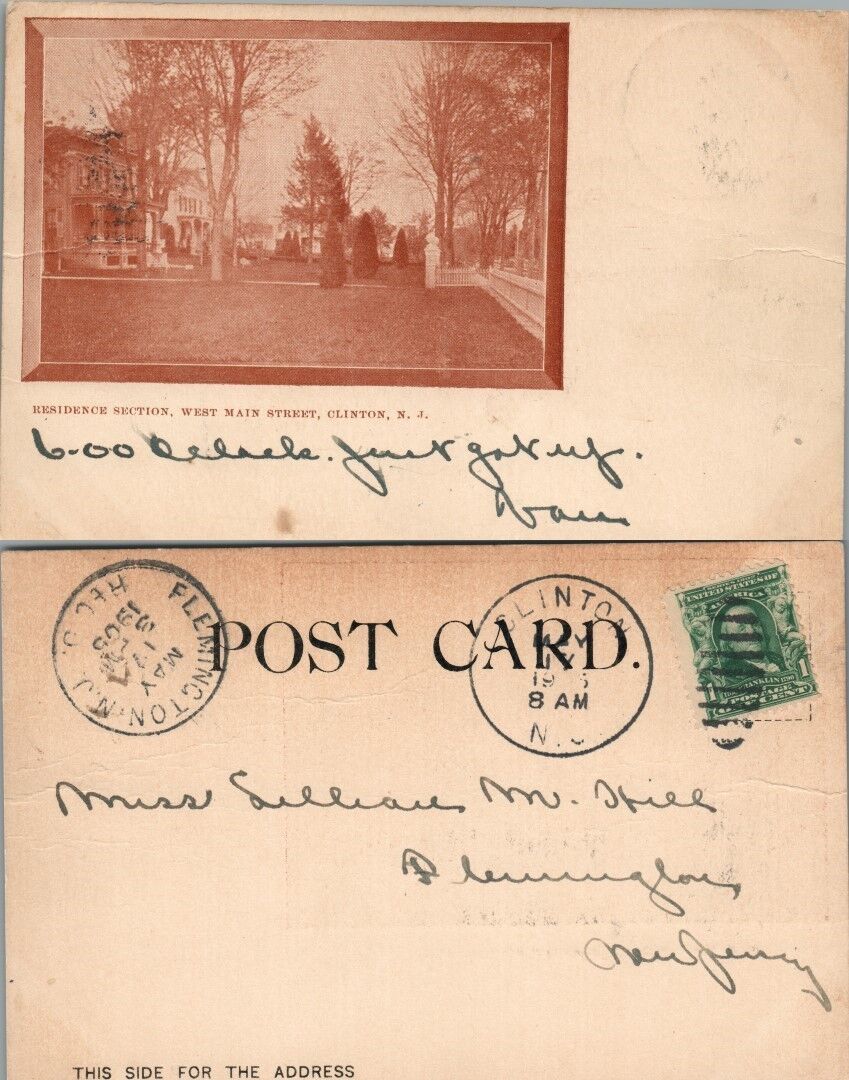 RESIDENCE SECTION, WEST MAIN STREET, CLINTON, N. J.
6-00 Oclock. Just got up.
FLEMINGTON, N.J.
MAY
13
1905
REC'D.
POST CARD.
CLINTON
MAY
8 AM
N.J.
UNITED STATES OF
AMERICA
1 1
FRANKLIN 1790
POSTAGE
CENT
Miss Lillian M. Hill
Flemington
New Jersey
THIS SIDE FOR THE ADDRESS